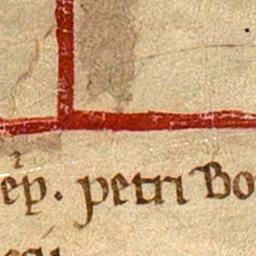 ep. petri Bo